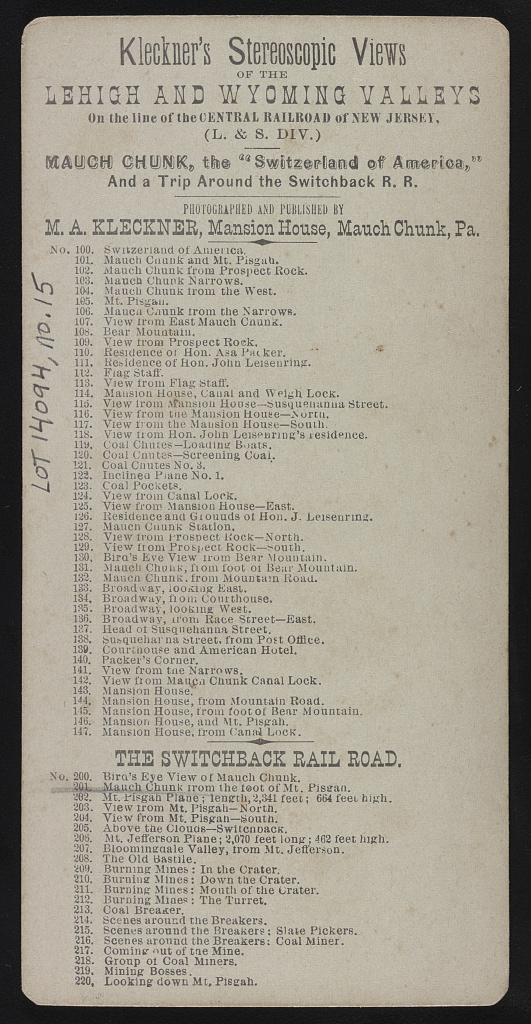 Kleckner's Stereoscopic Views
OF THE
LEHIGH AND WYOMING VALLEYS
On the line of the CENTRAL RAILROAD of NEW JERSEY,
(L. & S. DIV.)
MAUCH CHUNK, the "Switzerland of America,"
And a Trip Around the Switchback R. R.
PHOTOGRAPHED AND PUBLISHED BY
M. A. KLECKNER, Mansion House, Mauch Chunk, Pa.
No. 100. Switzerland of America.
101. Mauch Chunk and Mt. Pisgah.
102. Mauch Chunk from Prospect Rock.
103. Mauch Chunk Narrows.
104. Mauch Chunk from the West.
105. Mt. Pisgah.
106. Mauch Chunk from the Narrows.
107. View from East Mauch Chunk.
108. Bear Mountain.
109. View from Prospect Rock.
110. Residence of Hon. Asa Packer.
111. Residence of Hon. John Leisenring.
112. Flag Staff.
113. View from Flag Staff.
114. Mansion House, Canal and Weigh Lock.
115. View from Mansion House—Susquehanna Street.
116. View from the Mansion House—North.
117. View from the Mansion House—South.
118. View from Hon. John Leisenring's residence.
119. Coal Chutes—Loading Boats.
120. Coal Chutes—Screening Coal.
121. Coal Chutes No. 3.
122. Inclined Plane No. 1.
123. Coal Pockets.
124. View from Canal Lock.
125. View from Mansion House—East.
126. Residence and Grounds of Hon. J. Leisenring.
127. Mauch Chunk Station.
128. View from Prospect Rock—North.
129. View from Prospect Rock—South.
130. Bird's Eye View from Bear Mountain.
131. Mauch Chunk, from foot of Bear Mountain.
132. Mauch Chunk, from Mountain Road.
133. Broadway, looking East.
134. Broadway, from Courthouse.
135. Broadway, looking West.
136. Broadway, from Race Street—East.
137. Head of Susquehanna Street.
138. Susquehanna Street, from Post Office.
139. Courthouse and American Hotel.
140. Packer's Corner.
141. View from the Narrows.
142. View from Mauch Chunk Canal Lock.
143. Mansion House.
144. Mansion House, from Mountain Road.
145. Mansion House, from foot of Bear Mountain.
146. Mansion House, and Mt. Pisgah.
147. Mansion House, from Canal Lock.
THE SWITCHBACK RAIL ROAD.
No. 200. Bird's Eye View of Mauch Chunk.
201. Mauch Chunk from the foot of Mt. Pisgah.
202. Mt. Pisgah Plane; length, 2,341 feet; 664 feet high.
203. View from Mt. Pisgah—North.
204. View from Mt. Pisgah—South.
205. Above the Clouds—Switchback.
206. Mt. Jefferson Plane; 2,070 feet long; 462 feet high.
207. Bloomingdale Valley, from Mt. Jefferson.
208. The Old Bastile.
209. Burning Mines: In the Crater.
210. Burning Mines: Down the Crater.
211. Burning Mines: Mouth of the Crater.
212. Burning Mines: The Turret.
213. Coal Breaker.
214. Scenes around the Breakers.
215. Scenes around the Breakers: Slate Pickers.
216. Scenes around the Breakers: Coal Miner.
217. Coming out of the Mine.
218. Group of Coal Miners.
219. Mining Bosses.
220. Looking down Mt. Pisgah.
LOT 14094, no. 15